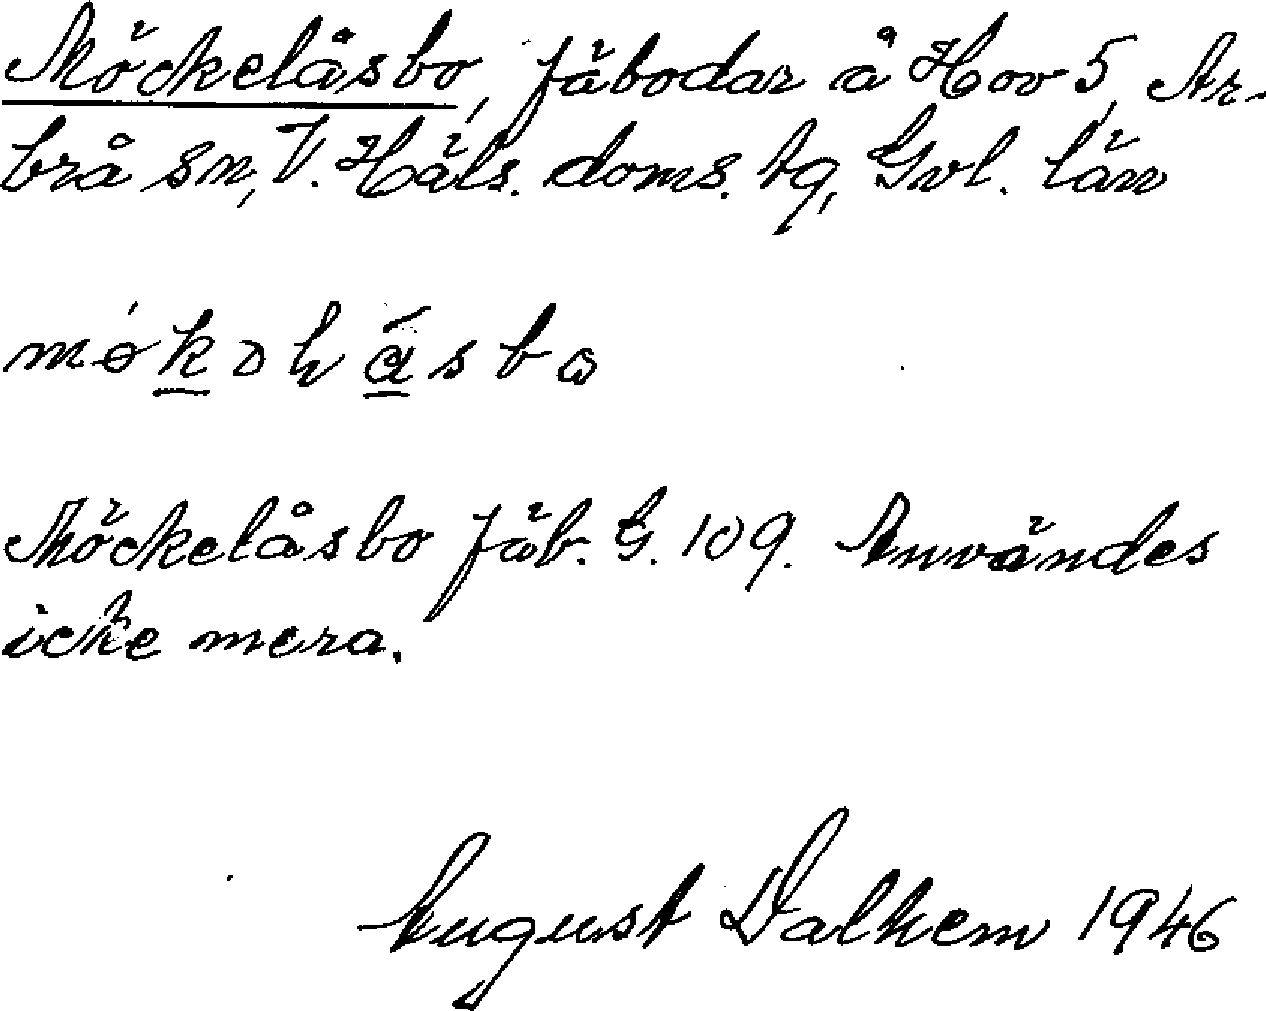 Möckelåsbo, fäbodar å Hov 5, Ar-
brå sn, V. Häls. doms. tg, Gvl. län
Möckelåsbo fäb. G. 109. Användes
icke mera.
August Dalhem 1946